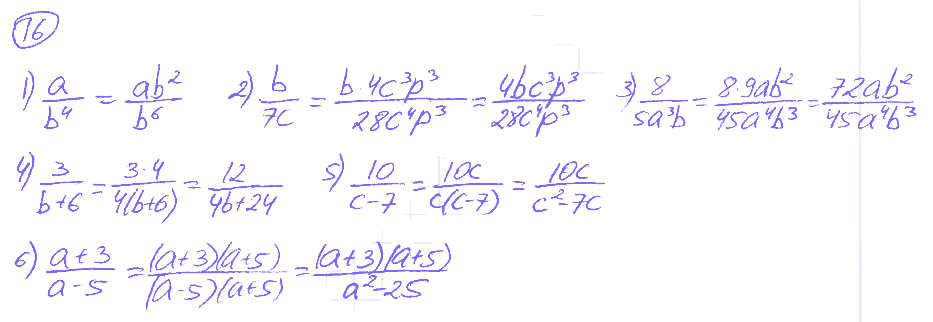 76
1) a/b⁴ = ab²/b⁶ 2) b/7c = b·4c³p³/28c⁴p³ = 4bc³p³/28c⁴p³ 3) 8/5a³b = 8·9ab²/45a⁴b³ = 72ab²/45a⁴b³
4) 3/(b+6) = 3·4/4(b+6) = 12/(4b+24) 5) 10/(c-7) = 10c/c(c-7) = 10c/(c²-7c)
6) (a+3)/(a-5) = (a+3)(a+5)/(a-5)(a+5) = (a+3)(a+5)/(a²-25)